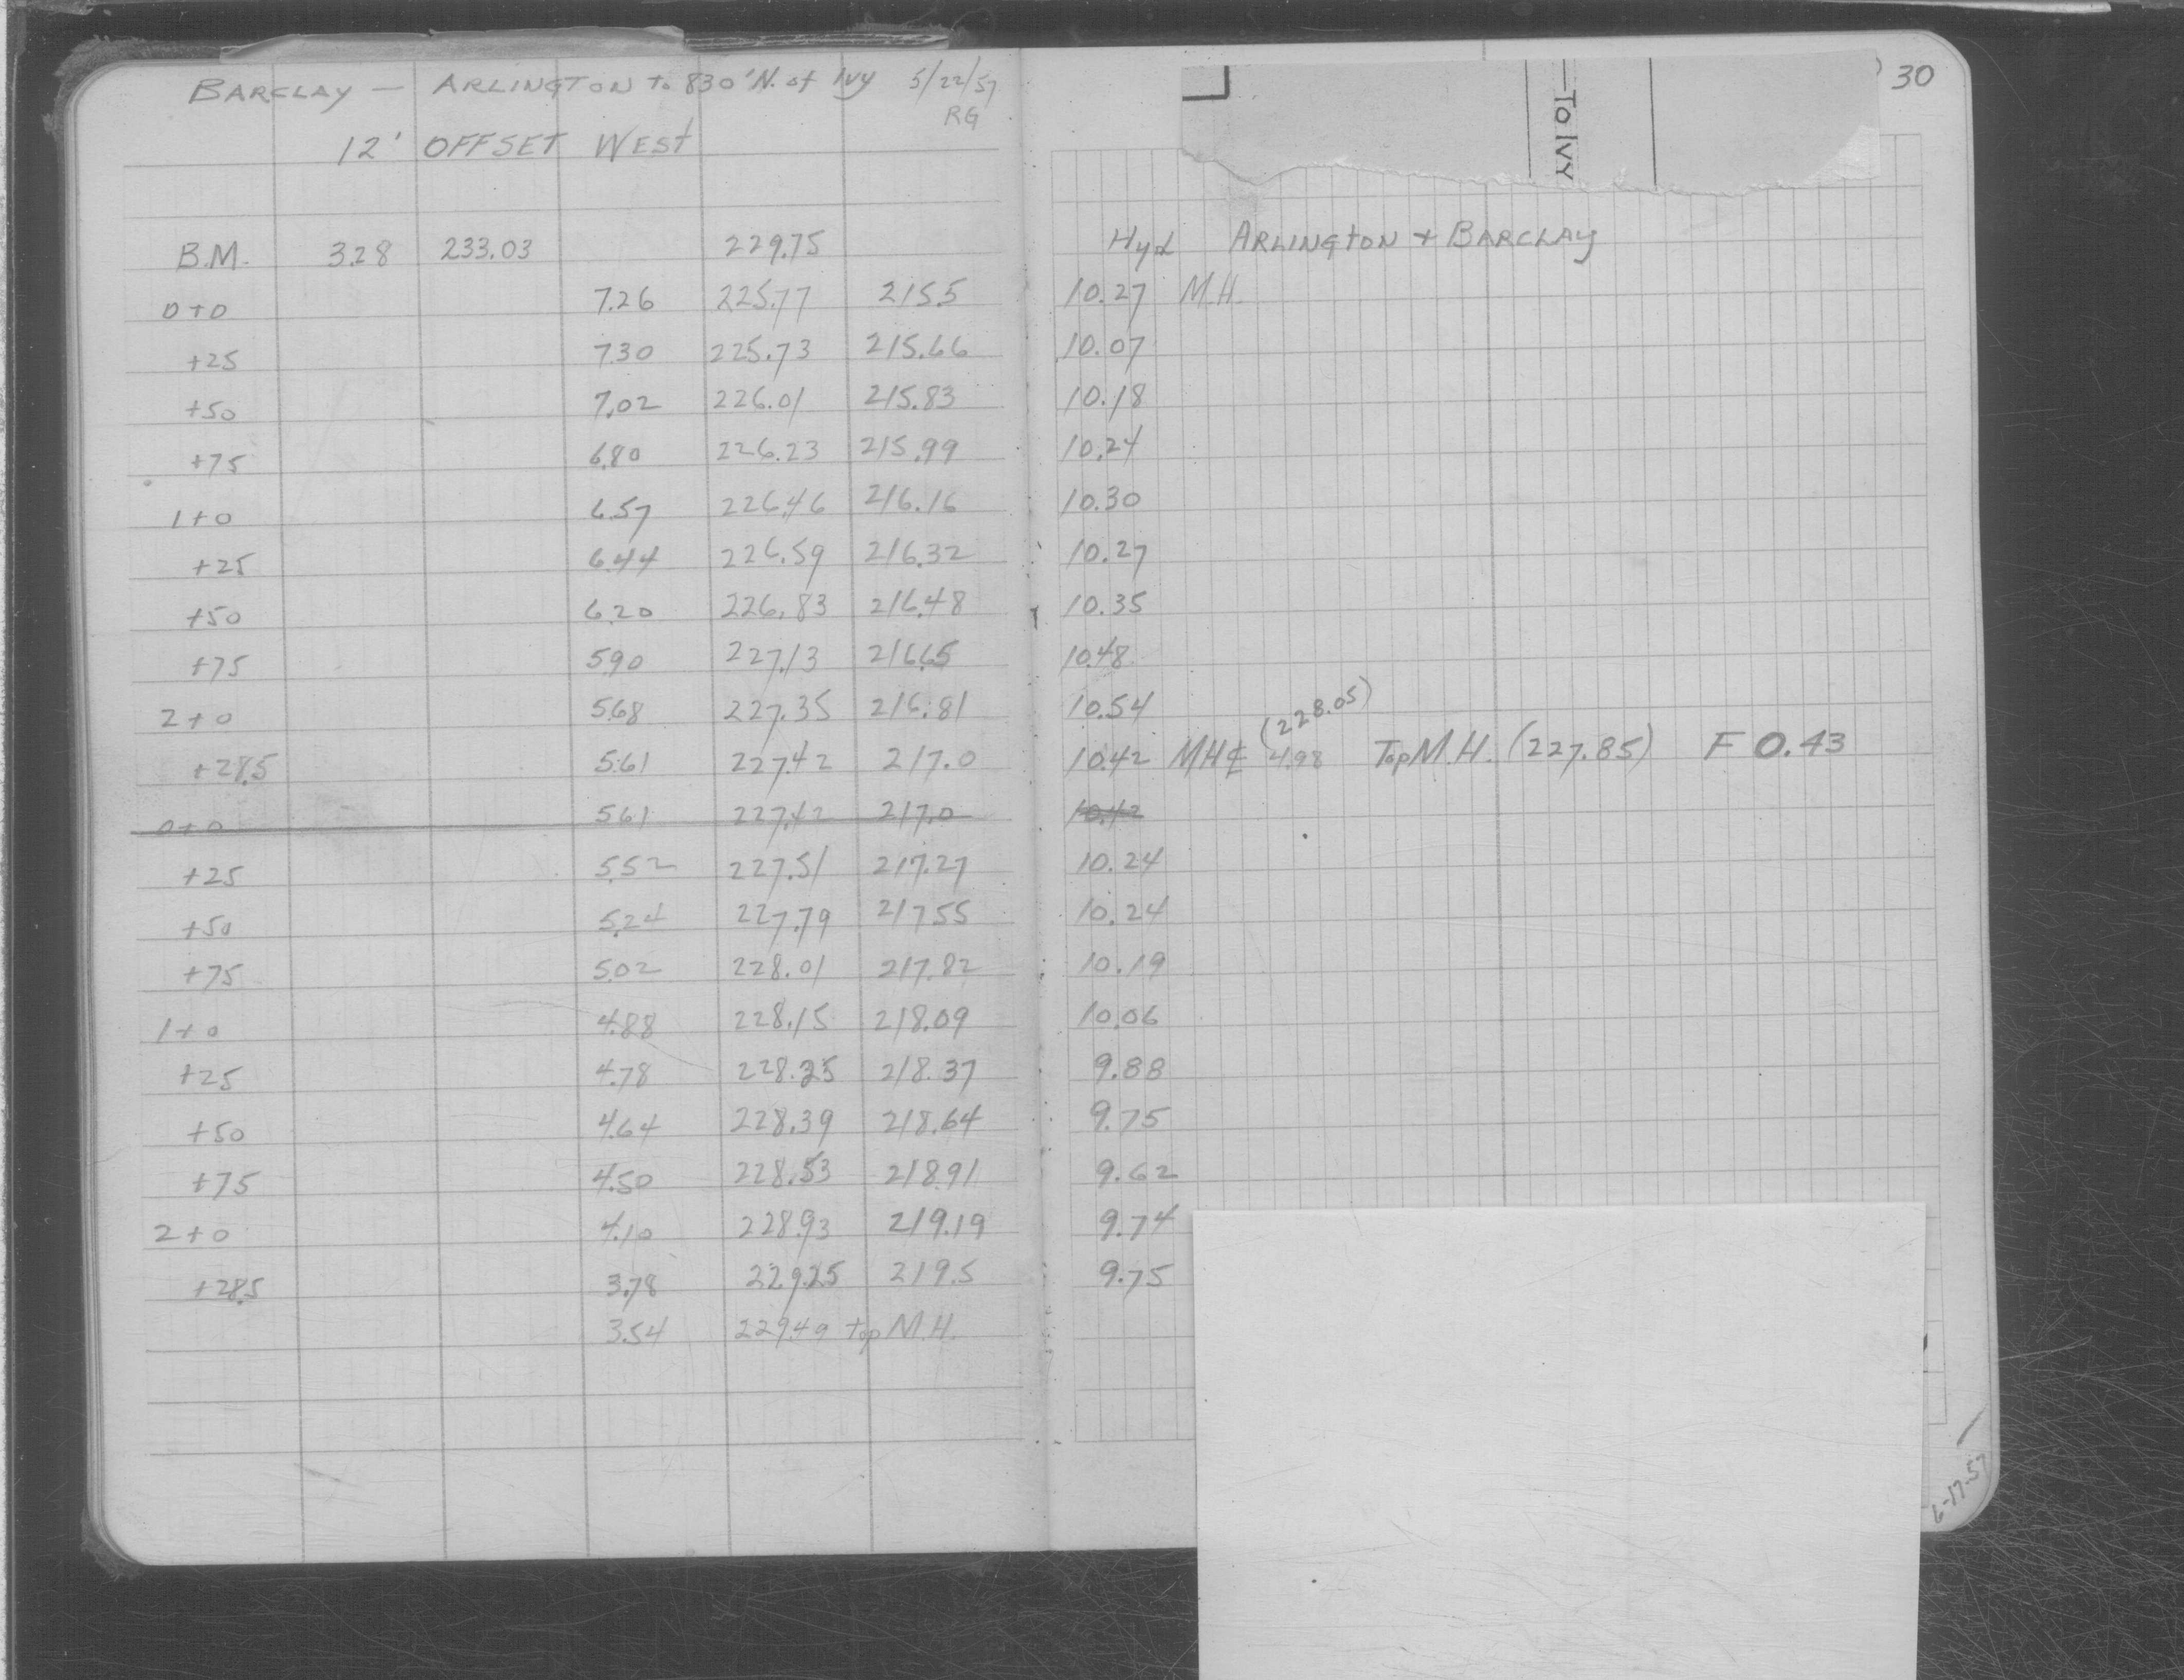 BARCLAY — ARLINGTON To 830' N. of IVY 5/22/57
RG
12' OFFSET WEST
30
—To IVY
B.M. 3.28 233.03 229.75 Hyd ARLINGTON + BARCLAY
0+0 7.26 225.77 215.5 10.27 M.H.
+25 7.30 225.73 215.66 10.07
+50 7.02 226.01 215.83 10.18
+75 6.80 226.23 215.99 10.24
1+0 6.57 226.46 216.16 10.30
+25 6.44 226.59 216.32 10.27
+50 6.20 226.83 216.48 10.35
+75 5.90 227.13 216.65 10.48
2+0 5.68 227.35 216.81 10.54
(228.05)
+28.5 5.61 227.42 217.0 10.42 MH ℄ 4.98 Top M.H. (227.85) F 0.43
0+0 5.61 227.42 217.0 10.42
+25 5.52 227.51 217.27 10.24
+50 5.24 227.79 217.55 10.24
+75 5.02 228.01 217.82 10.19
1+0 4.88 228.15 218.09 10.06
+25 4.78 228.25 218.37 9.88
+50 4.64 228.39 218.64 9.75
+75 4.50 228.53 218.91 9.62
2+0 4.10 228.93 219.19 9.74
+28.5 3.78 229.25 219.5 9.75
3.54 229.49 top M.H.
6-17-57